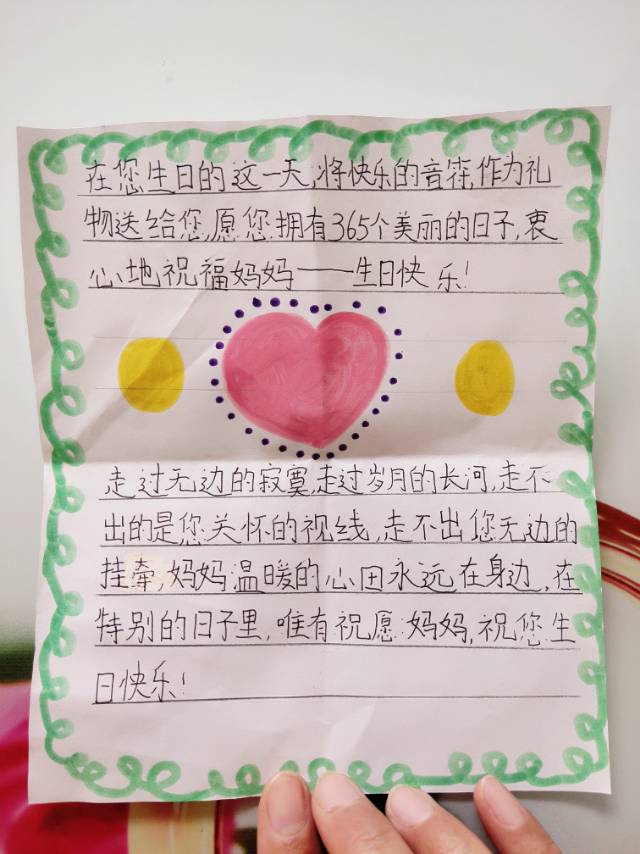 在您生日的这一天,将快乐的音符,作为礼
物送给您,愿您拥有365个美丽的日子,衷
心地祝福妈妈——生日快乐!
走过无边的寂寞,走过岁月的长河,走不
出的是您关怀的视线,走不出您无边的
挂牵,妈妈温暖的心田永远在身边,在
特别的日子里,唯有祝愿:妈妈,祝您生
日快乐!